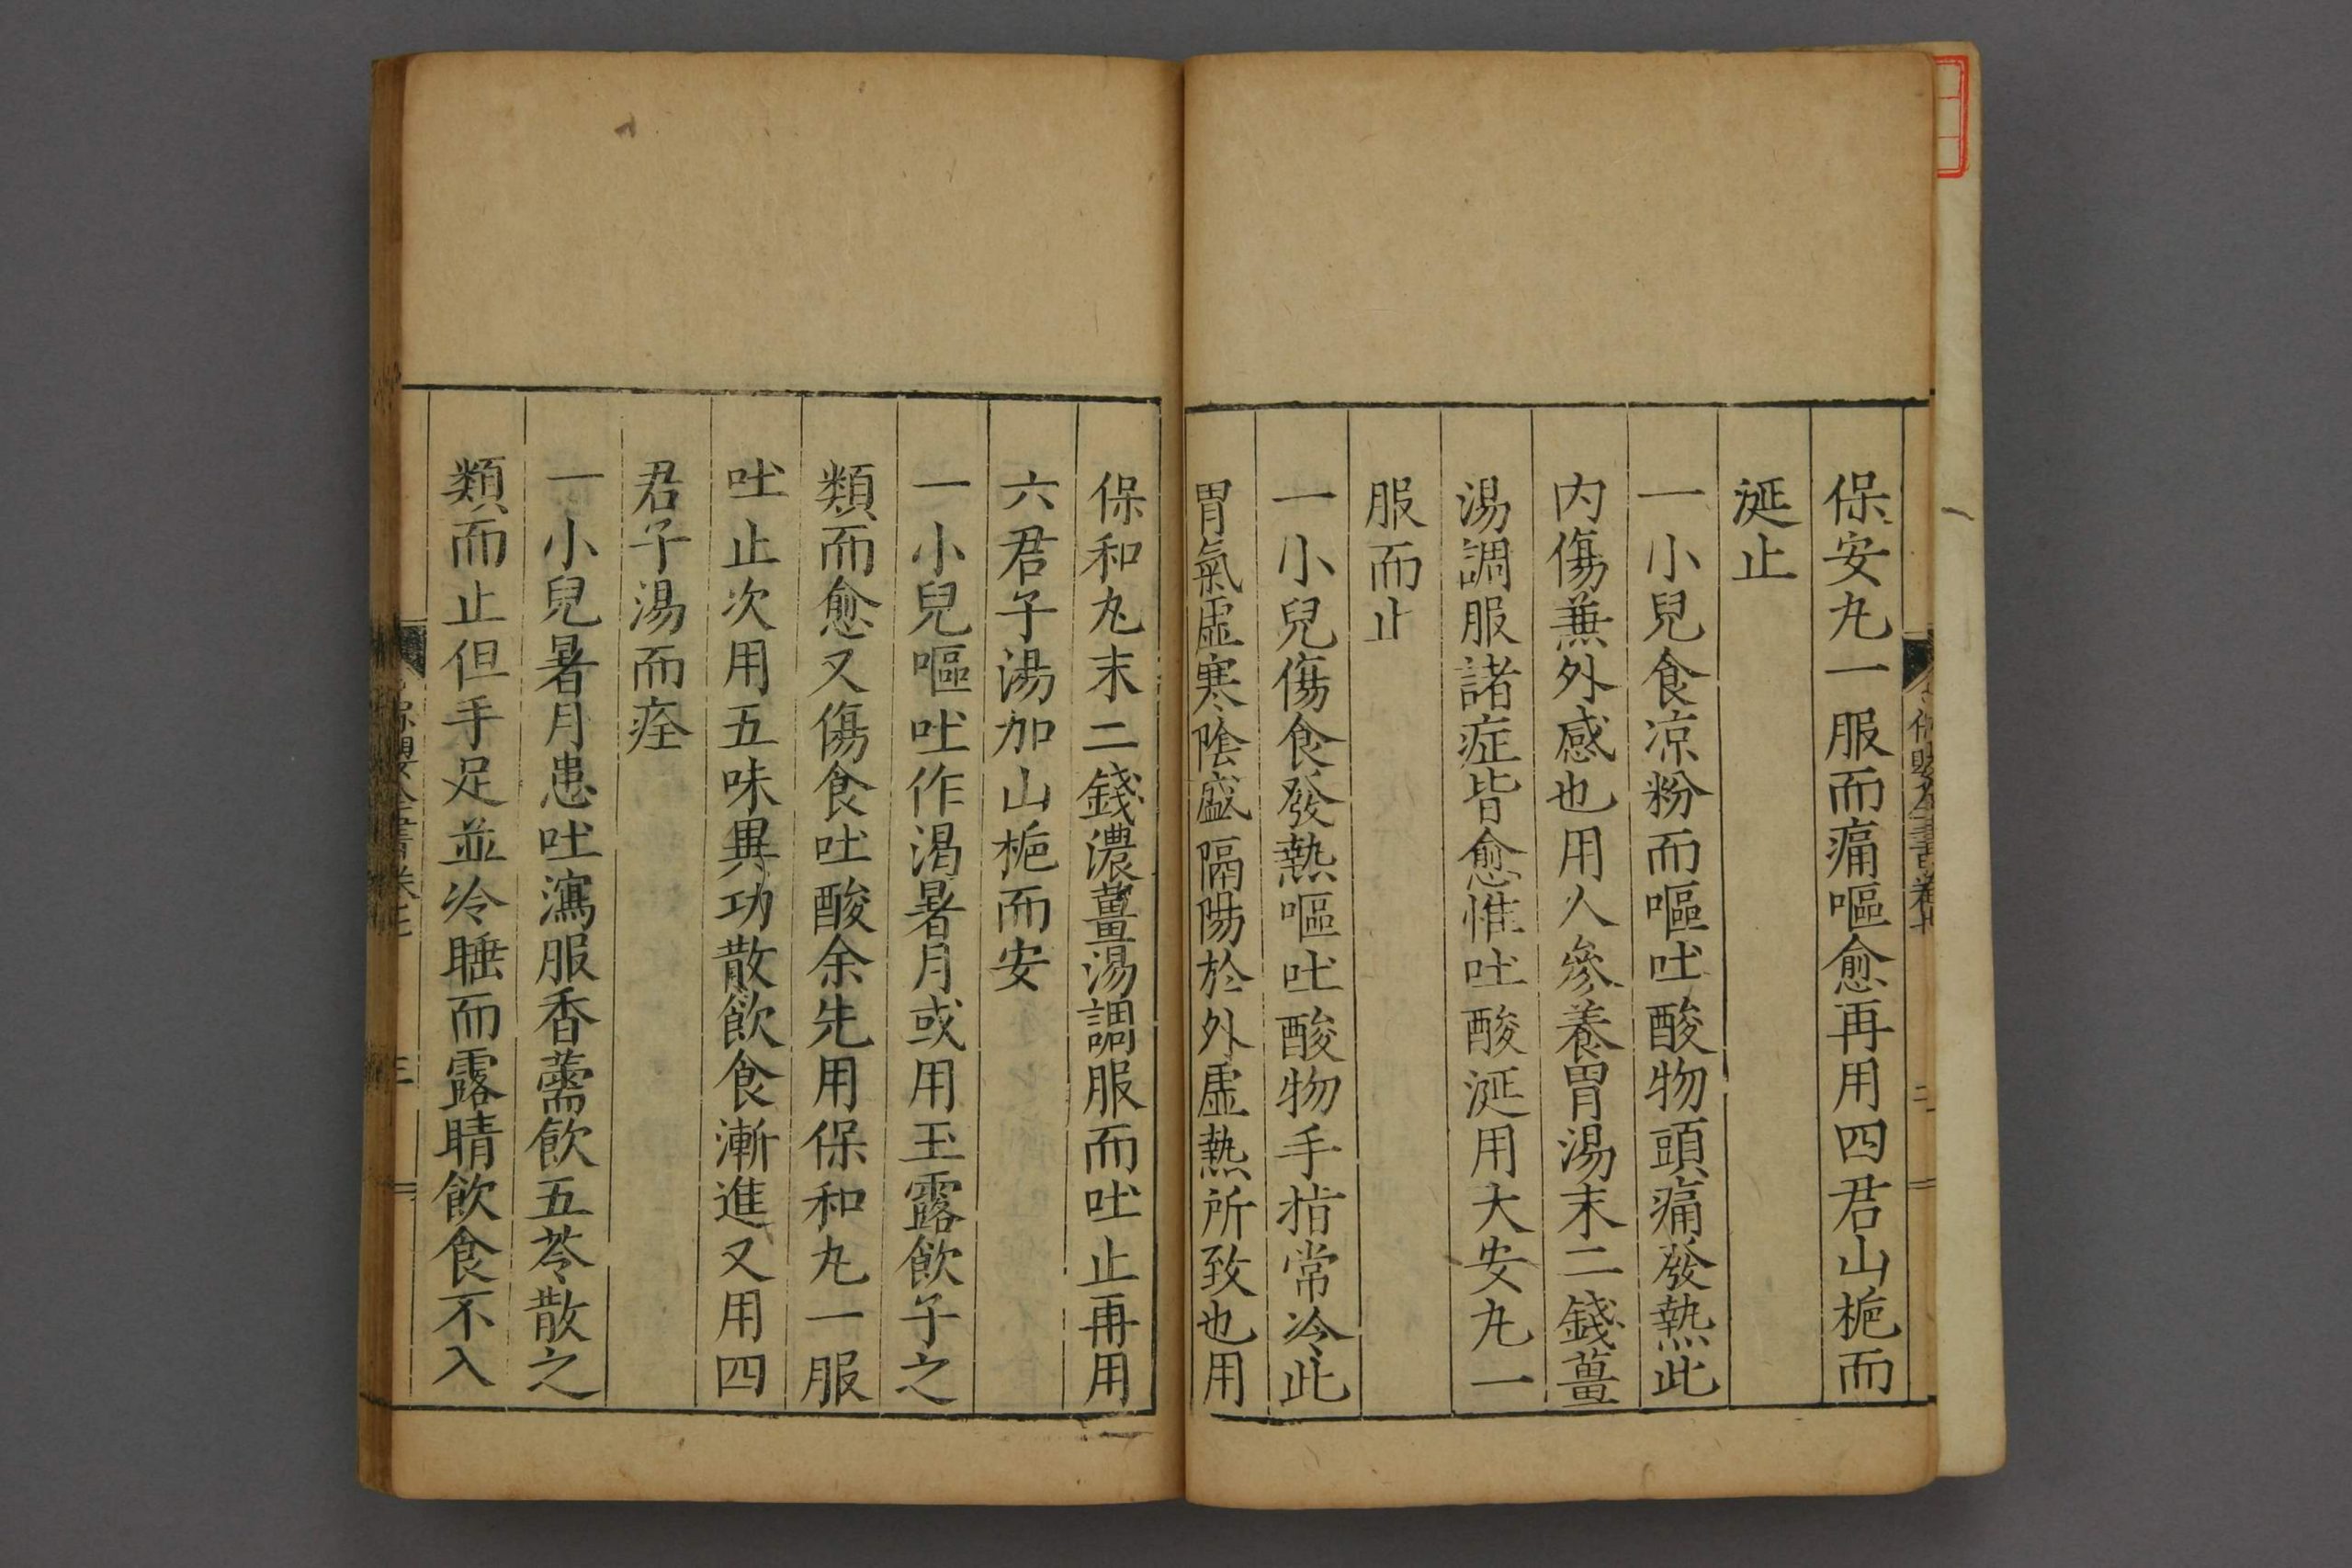 保安丸一服而痛嘔愈再用四君山梔而
涎止
一小兒食凉粉而嘔吐酸物頭痛發熱此
内傷兼外感也用人參養胃湯末二錢薑
湯調服諸症皆愈惟吐酸涎用大安丸一
服而止
一小兒傷食發熱嘔吐酸物手指常冷此
胃氣虛寒陰盛隔陽於外虛熱所致也用
保和丸末二錢濃薑湯調服而吐止再用
六君子湯加山梔而安
一小兒嘔吐作渴暑月或用玉露飲子之
類而愈又傷食吐酸余先用保和丸一服
吐止次用五味異功散飲食漸進又用四
君子湯而痊
一小兒暑月患吐瀉服香薷飲五苓散之
類而止但手足並冷睡而露睛飲食不入